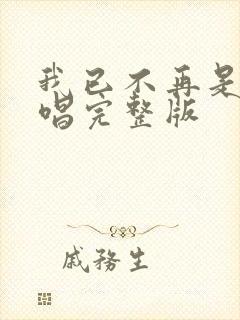 我已不再是
唱完整版
戚務生